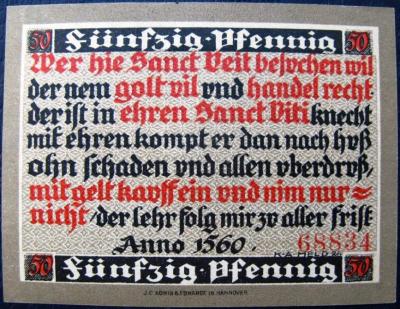 50 Fünfzig·Pfennig 50
Wer hie Sanct Veit besuchen wil
der nem golt vil vnd handel recht
der ist in ehren Sanct Viti knecht
mit ehren kompt er dan nach hvß
ohn schaden vnd allen vberdrvß,
mit gelt kauff ein vnd nim nur=
nicht / der lehr folg mir zv aller frist
Anno 1560. 68834
H.A.HELD
50 Fünfzig·Pfennig 50
J.C. KÖNIG & EBHARDT IN HANNOVER